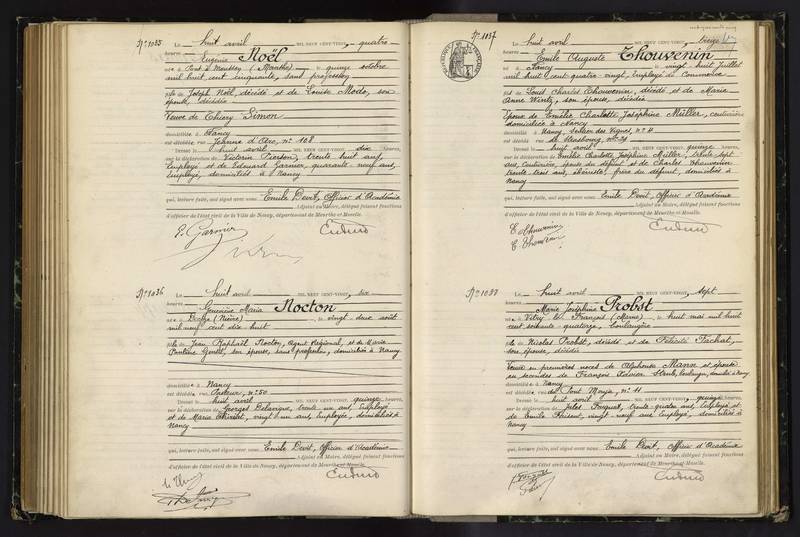 N° 1035 Le huit avril MIL NEUF CENT-VINGT, quatre
heures, Eugénie Noël
née à Pont à Mousson (Meurthe) le quinze octobre
mil huit cent cinquante, sans profession
fille de Joseph Noël, décédé et de Louise Modo, son
épouse, décédée
Veuve de Thiery Simon
domiciliée à Nancy
est décédée rue Jeanne d'Arc, n° 108
Dressé le huit avril MIL NEUF CENT-VINGT, dix
heures, sur la déclaration de Victorin Pierson, trente huit ans,
Employé et de Edouard Garnier, quarante neuf ans,
Employé, domiciliés à Nancy
qui, lecture faite, ont signé avec nous Emile Devit, Officier d'Académie
Adjoint au Maire, délégué faisant fonctions
d'officier de l'état civil de la Ville de Nancy, département de Meurthe et Moselle.
E. Garnier
N° 1036 Le huit avril MIL NEUF CENT-VINGT, six
heures, Geneviève Maria Nocton
née à (Nièvre) le vingt deux août
mil neuf cent dix huit
fille de Jean Raphaël Nocton, Agent Régional, et de Marie
son épouse, sans profession, domiciliés à Nancy
domiciliée à Nancy
est décédée rue Pasteur, n° 50
Dressé le huit avril MIL NEUF CENT-VINGT, quinze
heures, sur la déclaration de Georges Delavigne, trente un ans, Employé
et de Maria vingt un ans, Employée, domiciliés à
Nancy
qui, lecture faite, ont signé avec nous Emile Devit, Officier d'Académie
Adjoint au Maire, délégué faisant fonctions
d'officier de l'état civil de la Ville de Nancy, département de Meurthe et Moselle.
N° 1037 Le huit avril MIL NEUF CENT-VINGT, treize
heures, Emile Auguste Thouvenin
né à Nancy le vingt huit Juillet
mil huit cent quatre-vingt, Employé de Commerce
fils de Louis Charles Thouvenin, décédé et de Marie
Anne Wintz, son épouse, décédée
Epoux de Emélie Charlotte Joséphine Müller, couturière
domiciliée à Nancy
domicilié à Nancy, Sentier des Vignes, n° 4
est décédé rue de Strasbourg, n° 29
Dressé le huit avril MIL NEUF CENT-VINGT, quinze
heures, sur la déclaration de Emélie Charlotte Joséphine Müller, trente sept
ans, Couturière, épouse du défunt et de Charles Thouvenin
trente trois ans, Ebéniste, frère du défunt, domiciliés à
Nancy
qui, lecture faite, ont signé avec nous Emile Devit, Officier d'Académie
Adjoint au Maire, délégué faisant fonctions
d'officier de l'état civil de la Ville de Nancy, département de Meurthe et Moselle.
E. Thouvenin
C. Thouvenin
Le huit avril MIL NEUF CENT-VINGT, sept
heures, Marie Joséphine Probst
née à Vitry le François (Marne) le huit mai mil huit
cent soixante quatorze, boulangère
fille de Nicolas Probst, décédé et de Félicité Fachat,
son épouse, décédée
Veuve en premières noces de Alphonse Mann et épouse
en secondes de François boulanger, domicilié à Nancy
domiciliée à Nancy
est décédée rue du Pont Mouja, n° 11
Dressé le huit avril MIL NEUF CENT-VINGT, quinze
heures, sur la déclaration de Jules trente quatre ans, Employé et
de Emile vingt neuf ans, Employé, domiciliés à
Nancy
qui, lecture faite, ont signé avec nous Emile Devit, Officier d'Académie
Adjoint au Maire, délégué faisant fonctions
d'officier de l'état civil de la Ville de Nancy, département de Meurthe et Moselle.